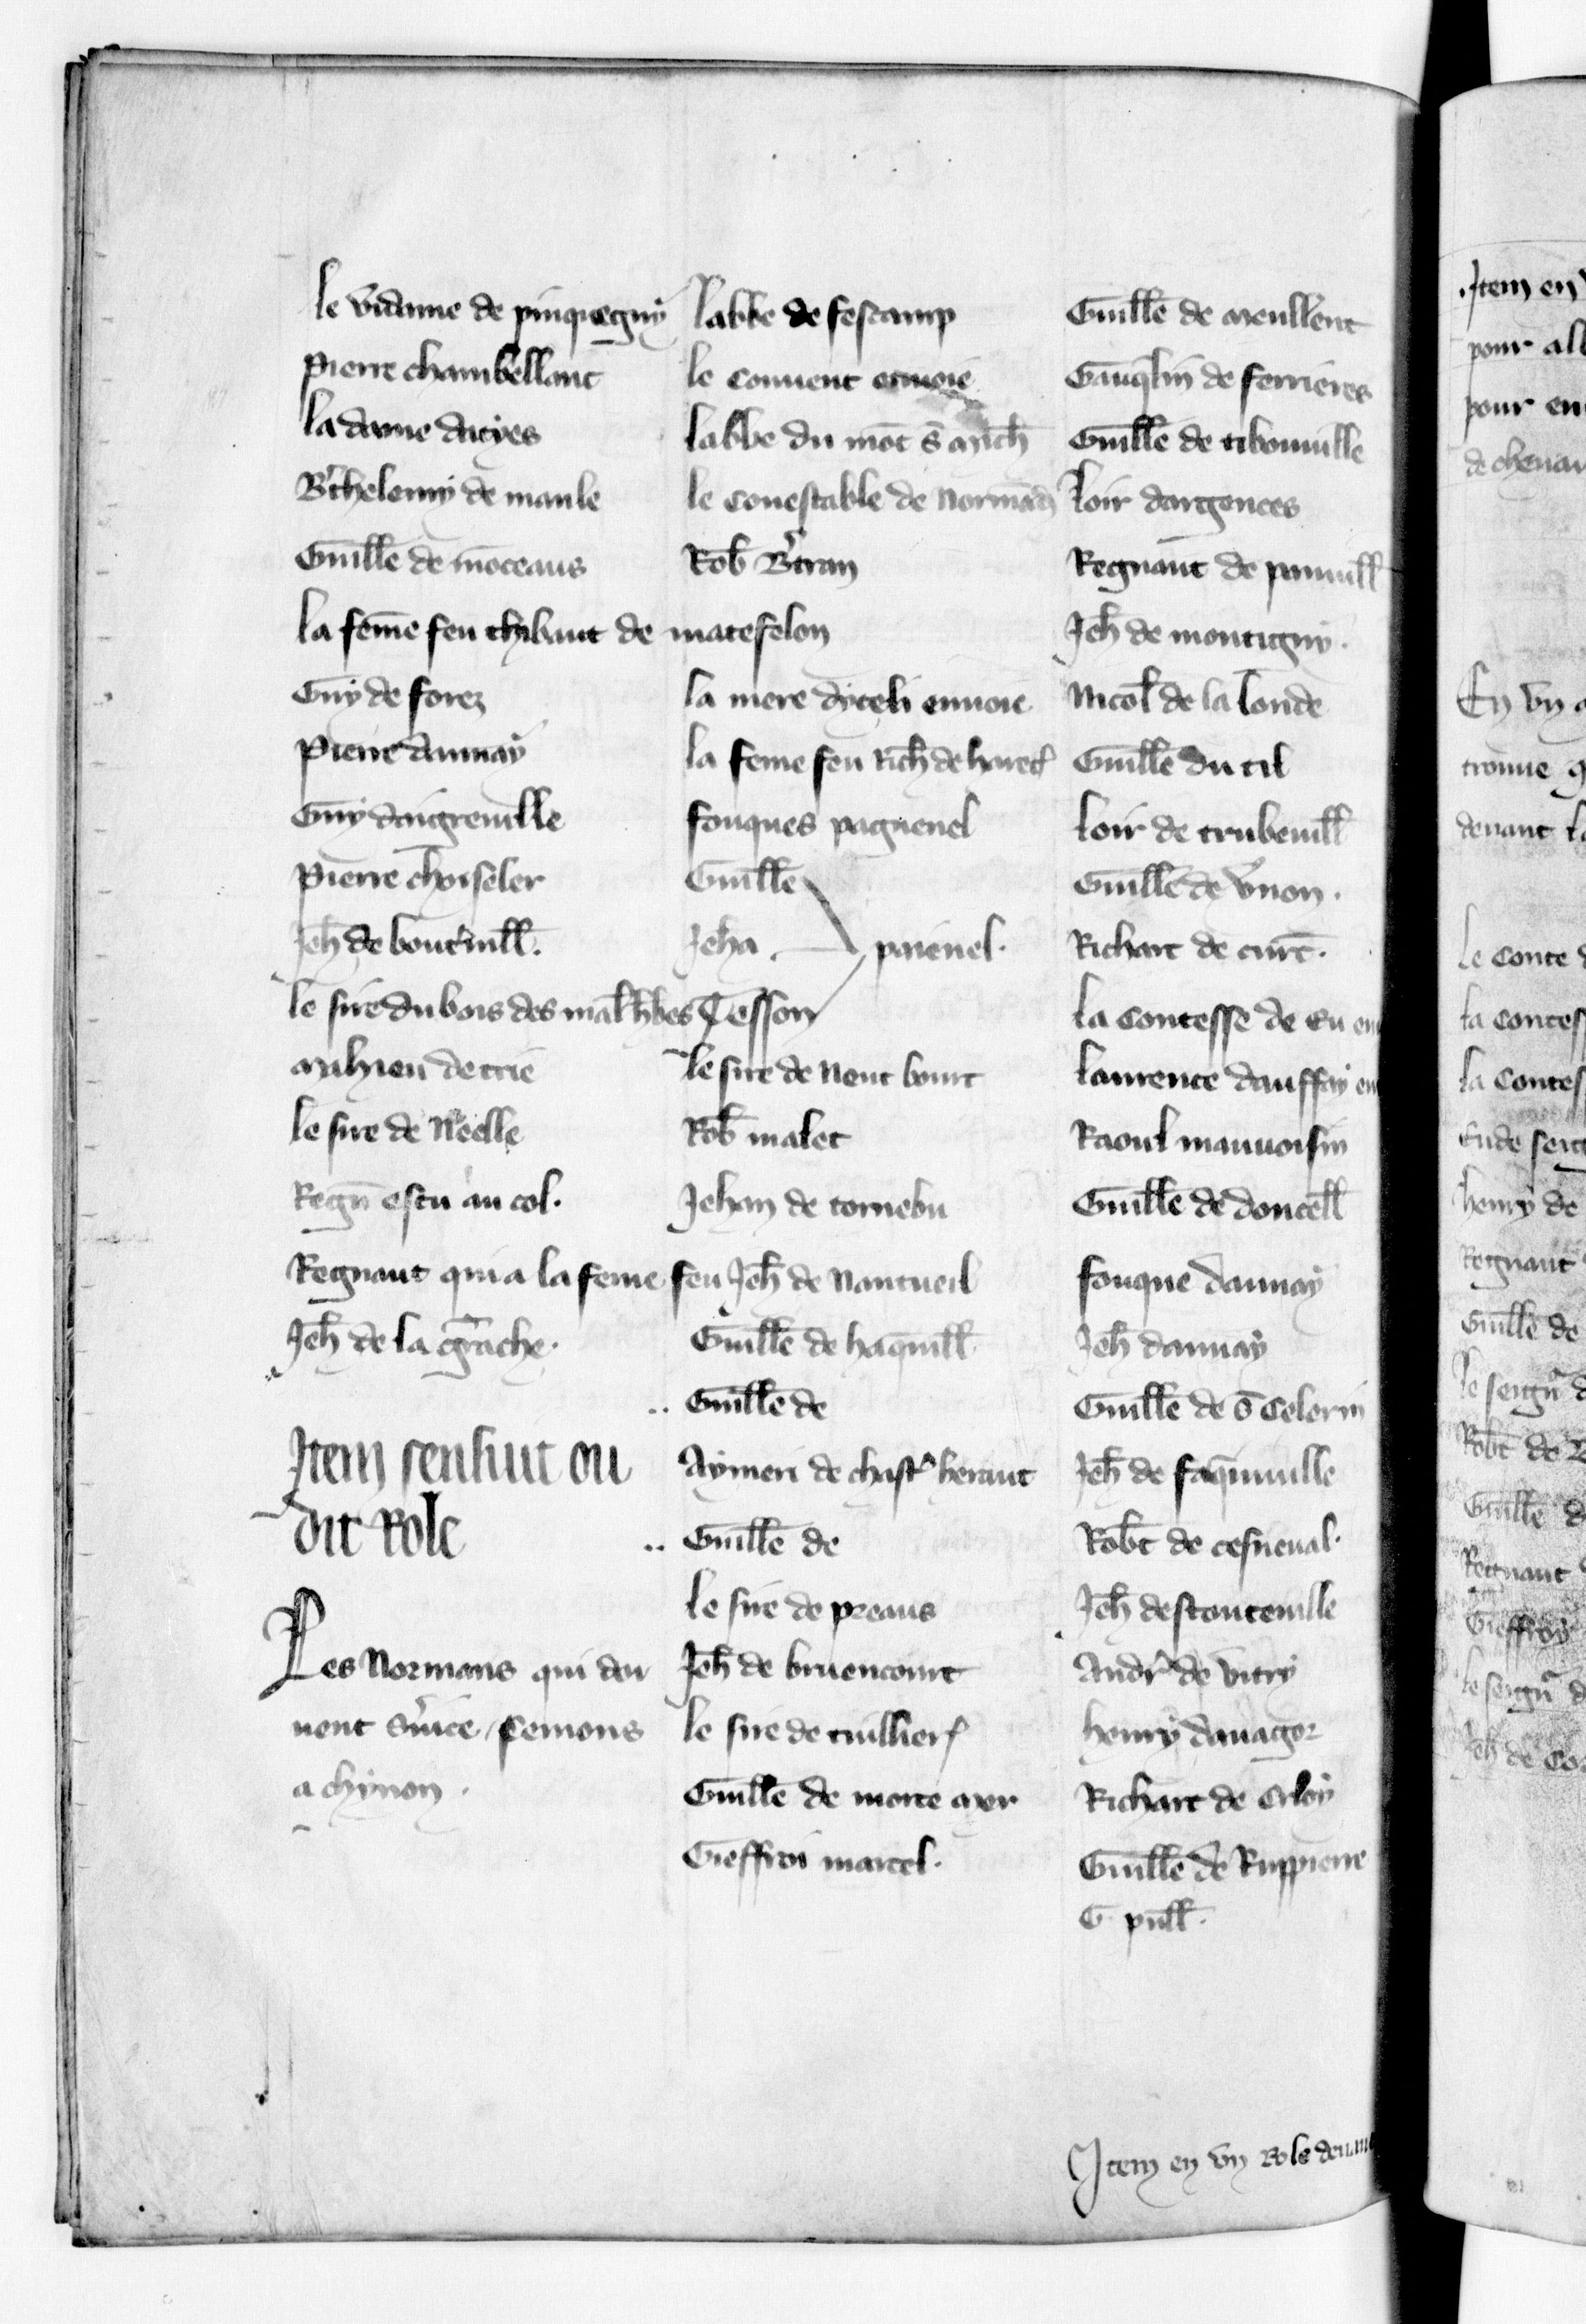 le vidame de pinquegny
Pierre chambellanc
la dame dacyes
B'thelemy de maule
Guille de moceaus
la feme feu thibaut de matefelon
Guy de forez
Pierre daunay
Guy daigreuille
Pierre choiseler
Jeh de bout'uill.
le sire du bois des malh'bes
mahieu de trie
le sire de Neelle
Regn escu au col.
Regnaut qui a la feme feu Jeh de Nantueil
Jeh de la g'nche.
Item sensuit ou
dit Role
Les Normans qui doi
uent s'uice semons
a chynon.
labbe de fescamp
le conuent enuoie
labbe du mot s mich
le conestable de Normad
Rob B'tran
la mere dyceli enuoie
la feme feu Rich de harec
fouques pagnenel
Guille
Jeha
paienel.
Tesson
le sire de Neut bourt
Rob malet
Jehan de tornebu
Guille de haquuill
.. Guille de
Aymeri de chast' heraut
.. Guille de
le sire de preaus
Jeh de bruencourt
le sire de tuillier
Guille de morte mer
Gieffroi martel.
Guille de meullent
Gauqlin de ferrieres
Guille de tibouuille
loir dargences
Regnaut de panuill
Jeh de montigny.
Nicol de la londe
Guille du til
loir de trubeuill
Guille de v'non.
Richart de curt.
la contesse de eu en
laurence dauffay en
Raoul mauuoisin
Guille de doucell
fouque daunay
Jeh daunay
Guille de s Celerin
Jeh de faquuille
Robt de cesneual.
Jeh destouteuille
Andr' de vitry
henry dauagor
Richart de Crloy
Guille de Ruppierre
G. pull.
Item en vn Role
Item en
pour
pour
de cheuau
En vn
trouue
deuant
le conte
la contes
la contes
Eude
henry de
Regnaut
Guille de
le seign'
Robt de
Guille
Regnaut
Gieffroy
le seign'
Jeh de